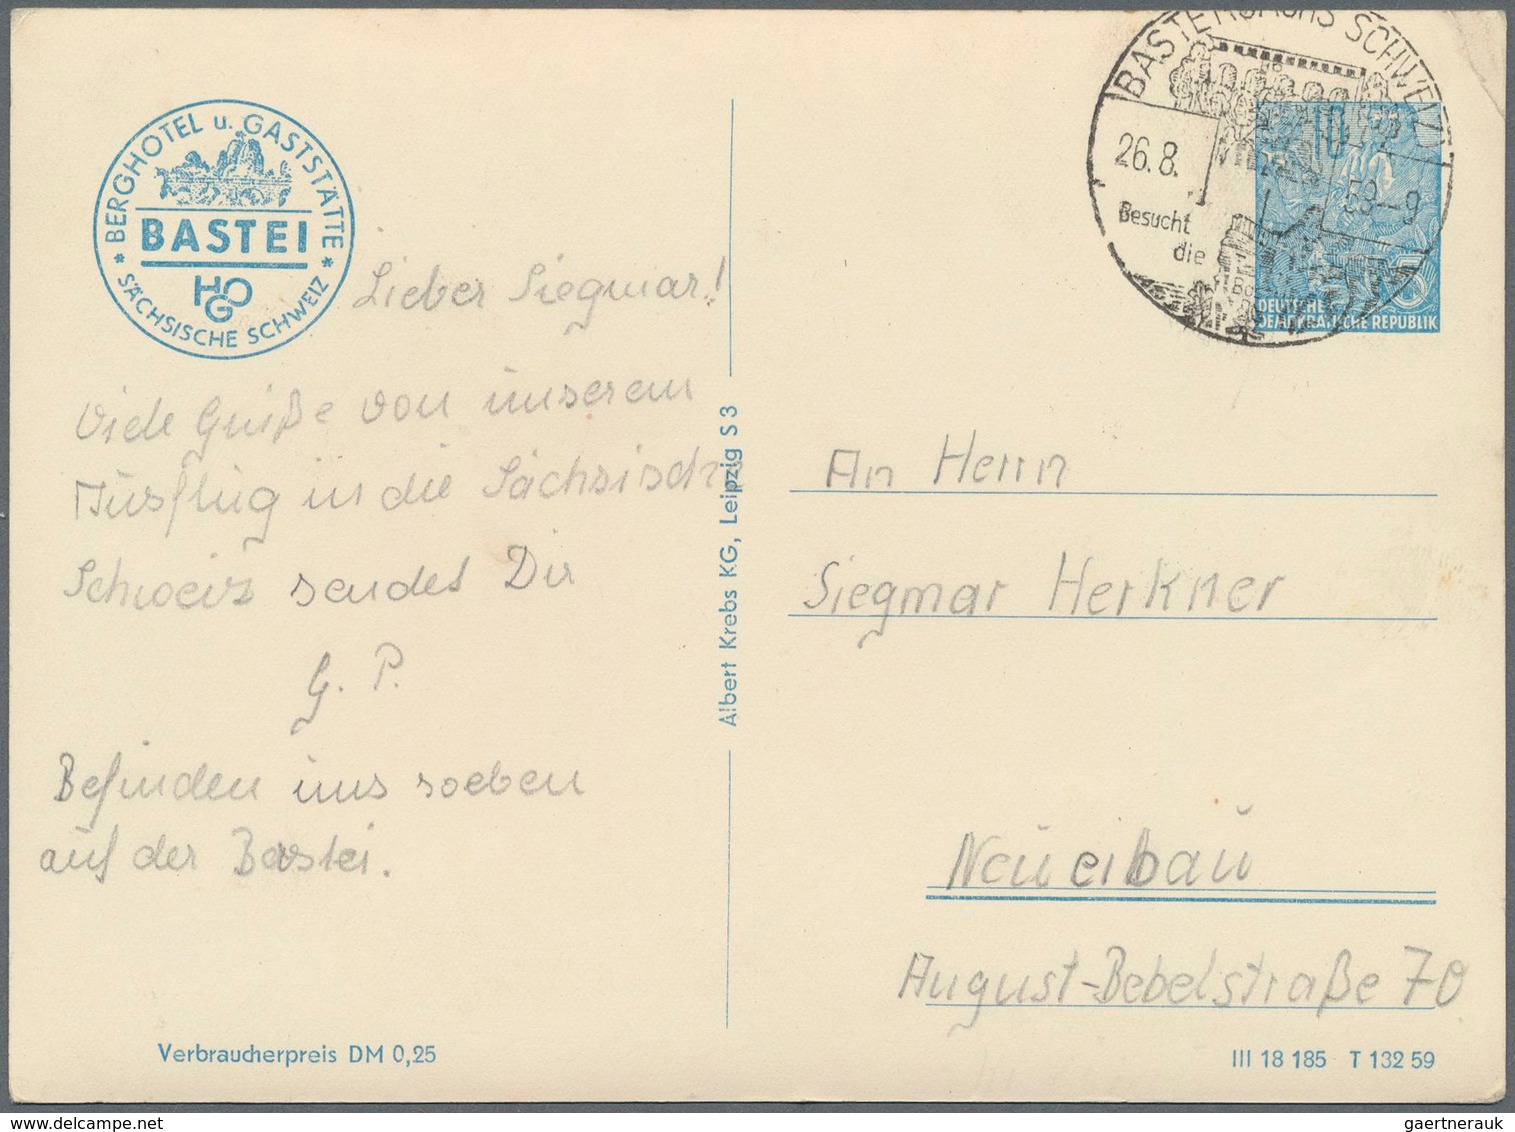 BERGHOTEL u. GASTSTÄTTE
BASTEI
HOG
* SÄCHSISCHE SCHWEIZ *
Lieber Siegmar!
Viele Grüße von unserem
Ausflug in die Sächsische
Schweiz sendet Dir
G. P.
Befinden uns soeben
auf der Bastei.
Verbraucherpreis DM 0,25
Albert Krebs KG, Leipzig S 3
SCHWEIZ
26.8. 59--9
Besucht
die
10
5
DEUTSCHE
DEMOKRATISCHE REPUBLIK
An Herrn
Siegmar Herkner
Neueibau
August-Bebelstraße 70
III 18 185 T 132 59
gaertnerauk